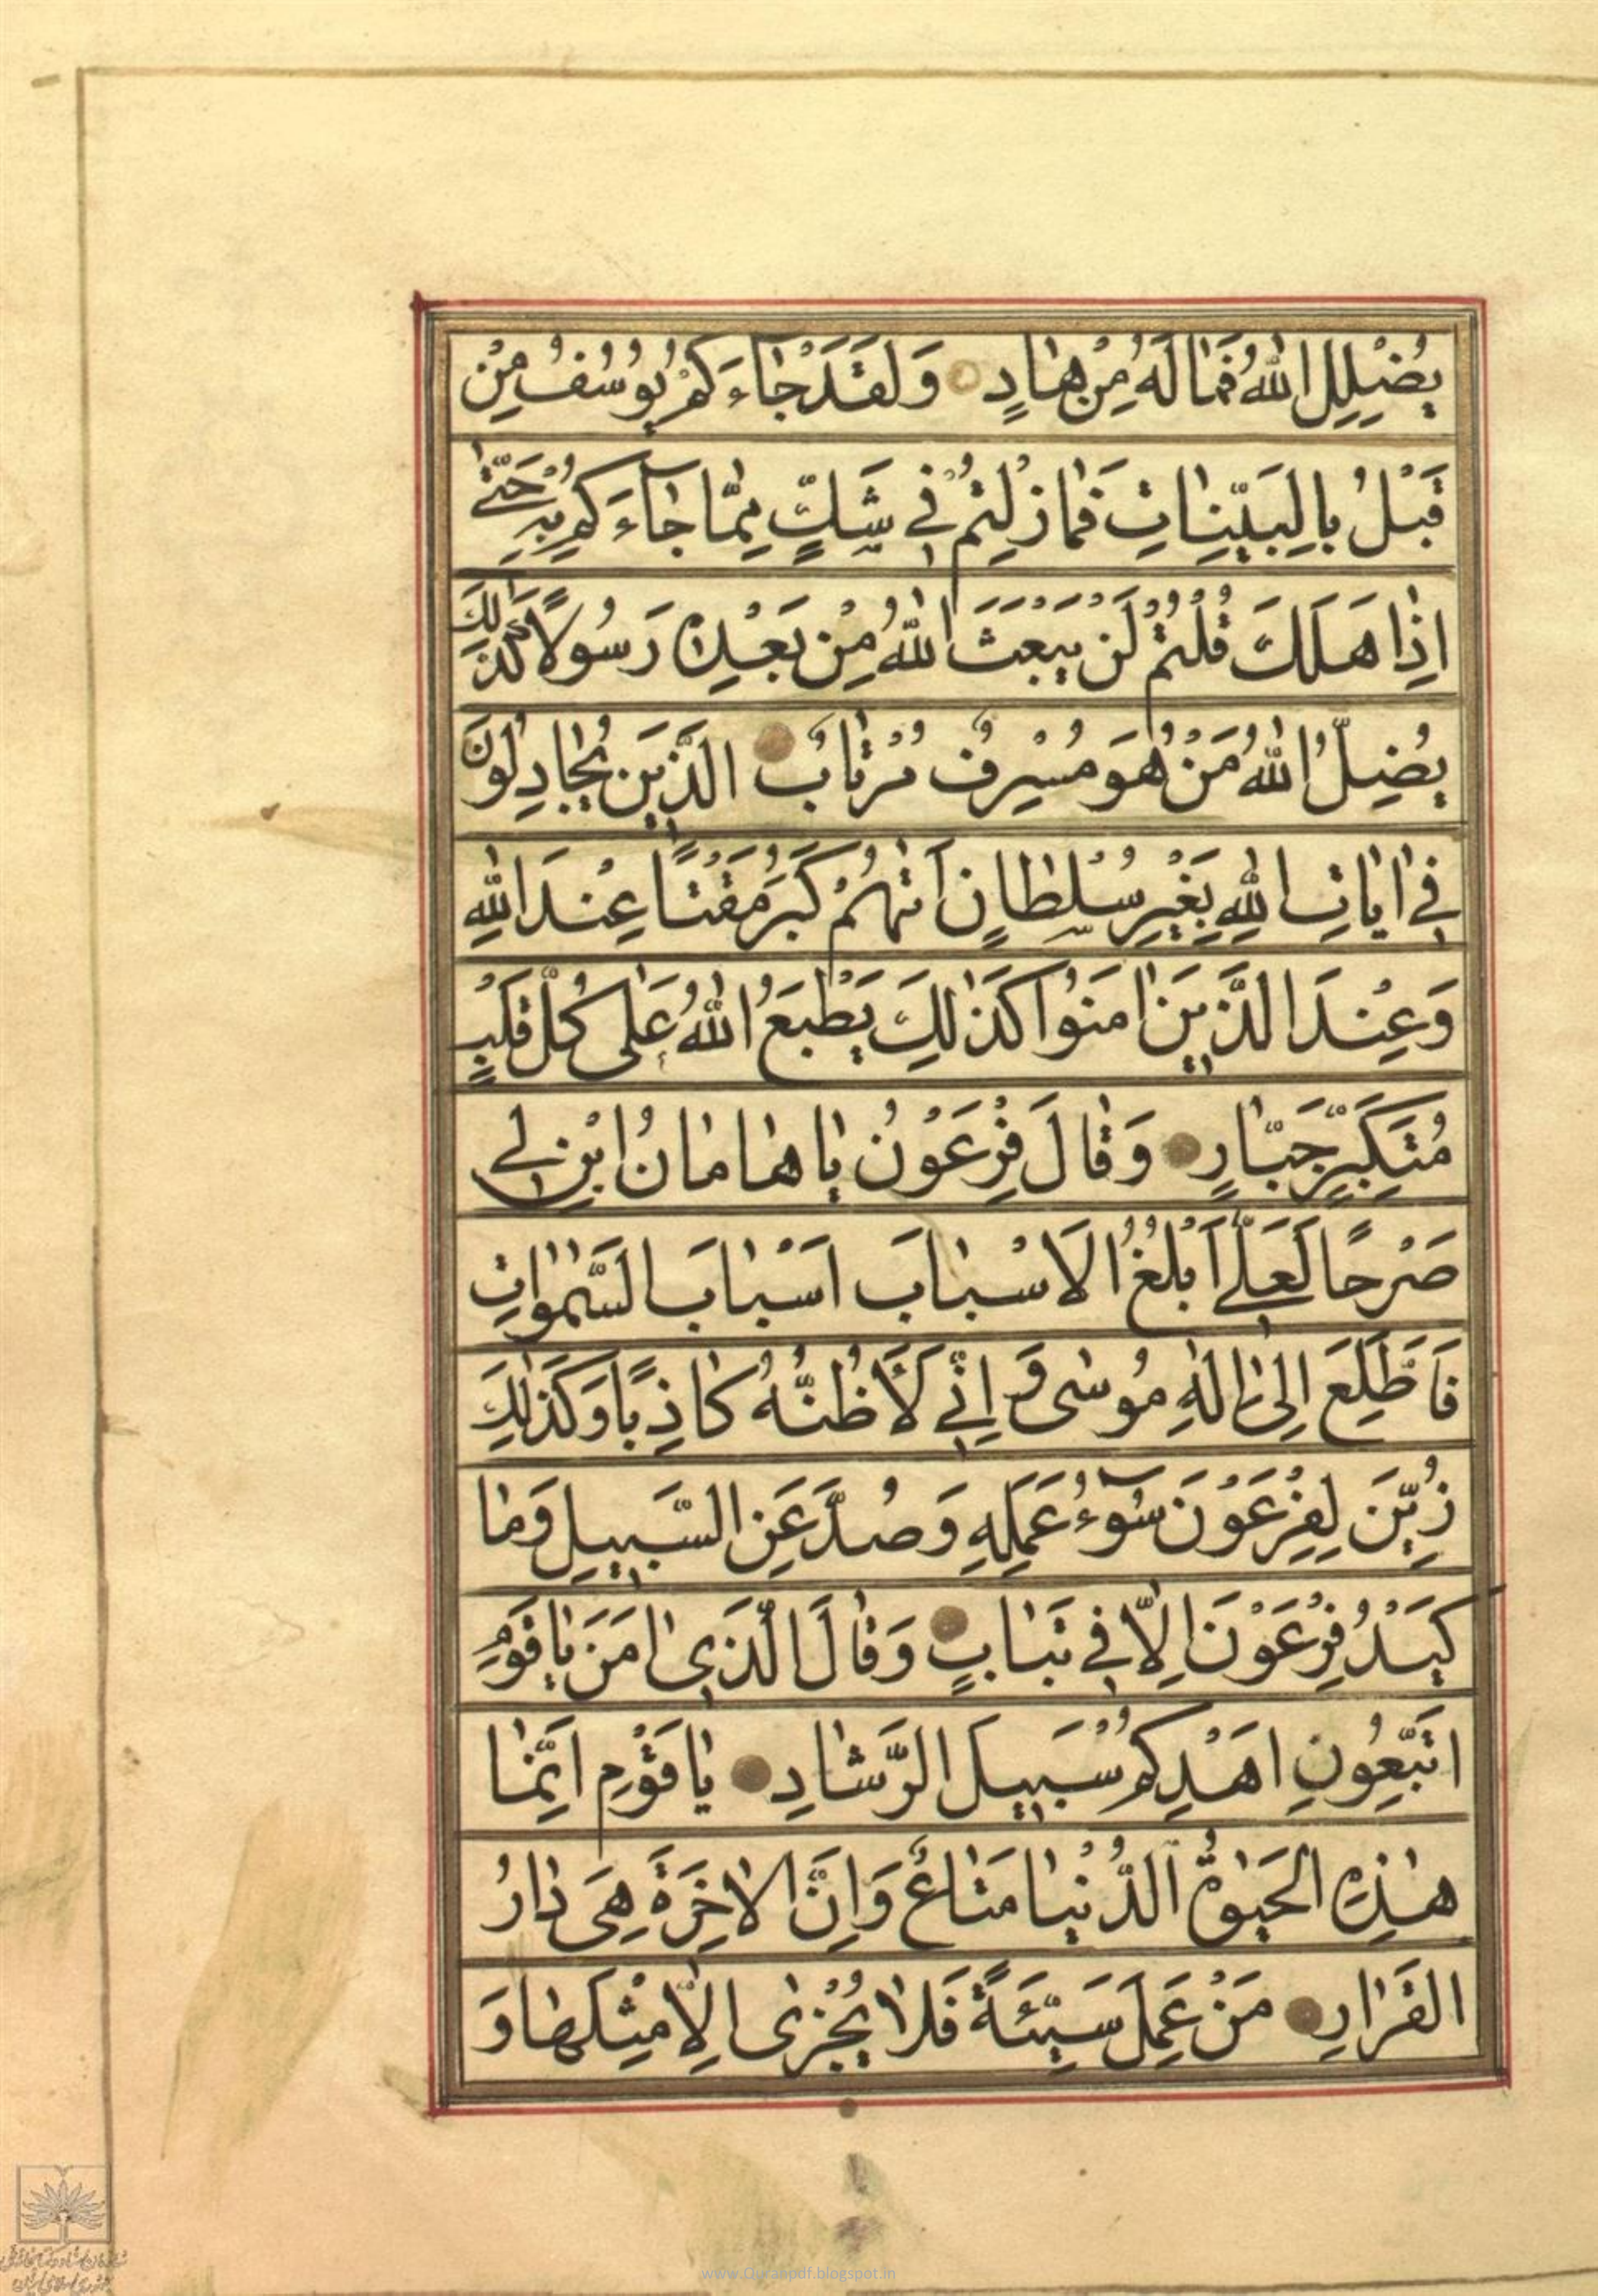 يُضْلِلِ اللّٰهُ فَمٰا لَهُ مِنْ هٰادٍ وَلَقَدْ جٰاءَكُمْ يُوسُفُ مِنْ
قَبْلُ بِالْبَيِّنٰاتِ فَمٰا زِلْتُمْ فِي شَكٍّ مِمّٰا جٰآءَكُمْ بِهِ حَتّٰى
اِذٰا هَلَكَ قُلْتُمْ لَنْ يَبْعَثَ اللّٰهُ مِنْ بَعْدِهِ رَسُولًا كَذٰلِكَ
يُضِلُّ اللّٰهُ مَنْ هُوَ مُسْرِفٌ مُرْتٰابٌ الَّذِينَ يُجٰادِلُونَ
فِي اٰيٰاتِ اللّٰهِ بِغَيْرِ سُلْطٰانٍ اَتٰهُمْ كَبُرَ مَقْتًا عِنْدَ اللّٰهِ
وَعِنْدَ الَّذِينَ اٰمَنُوا كَذٰلِكَ يَطْبَعُ اللّٰهُ عَلٰى كُلِّ قَلْبِ
مُتَكَبِّرٍ جَبّٰارٍ وَقٰالَ فِرْعَوْنُ يٰا هٰامٰانُ ابْنِ لِي
صَرْحًا لَعَلِّي اَبْلُغُ الْاَسْبٰابَ اَسْبٰابَ السَّمٰوٰاتِ
فَاَطَّلِعَ اِلٰى اِلٰهِ مُوسٰى وَ اِنِّي لَأَظُنُّهُ كٰاذِبًا وَكَذٰلِكَ
زُيِّنَ لِفِرْعَوْنَ سُوٓءُ عَمَلِهِ وَصُدَّ عَنِ السَّبِيلِ وَمٰا
كَيْدُ فِرْعَوْنَ اِلّٰا فِي تَبٰابٍ وَقٰالَ الَّذِي اٰمَنَ يٰا قَوْمِ
اتَّبِعُونِ اَهْدِكُمْ سَبِيلَ الرَّشٰادِ يٰا قَوْمِ اِنَّمٰا
هٰذِهِ الْحَيٰوةُ الدُّنْيٰا مَتٰاعٌ وَاِنَّ الْاٰخِرَةَ هِيَ دٰارُ
الْقَرٰارِ مَنْ عَمِلَ سَيِّئَةً فَلٰا يُجْزٰى اِلّٰا مِثْلَهٰا وَ
www.Quranpdf.blogspot.in